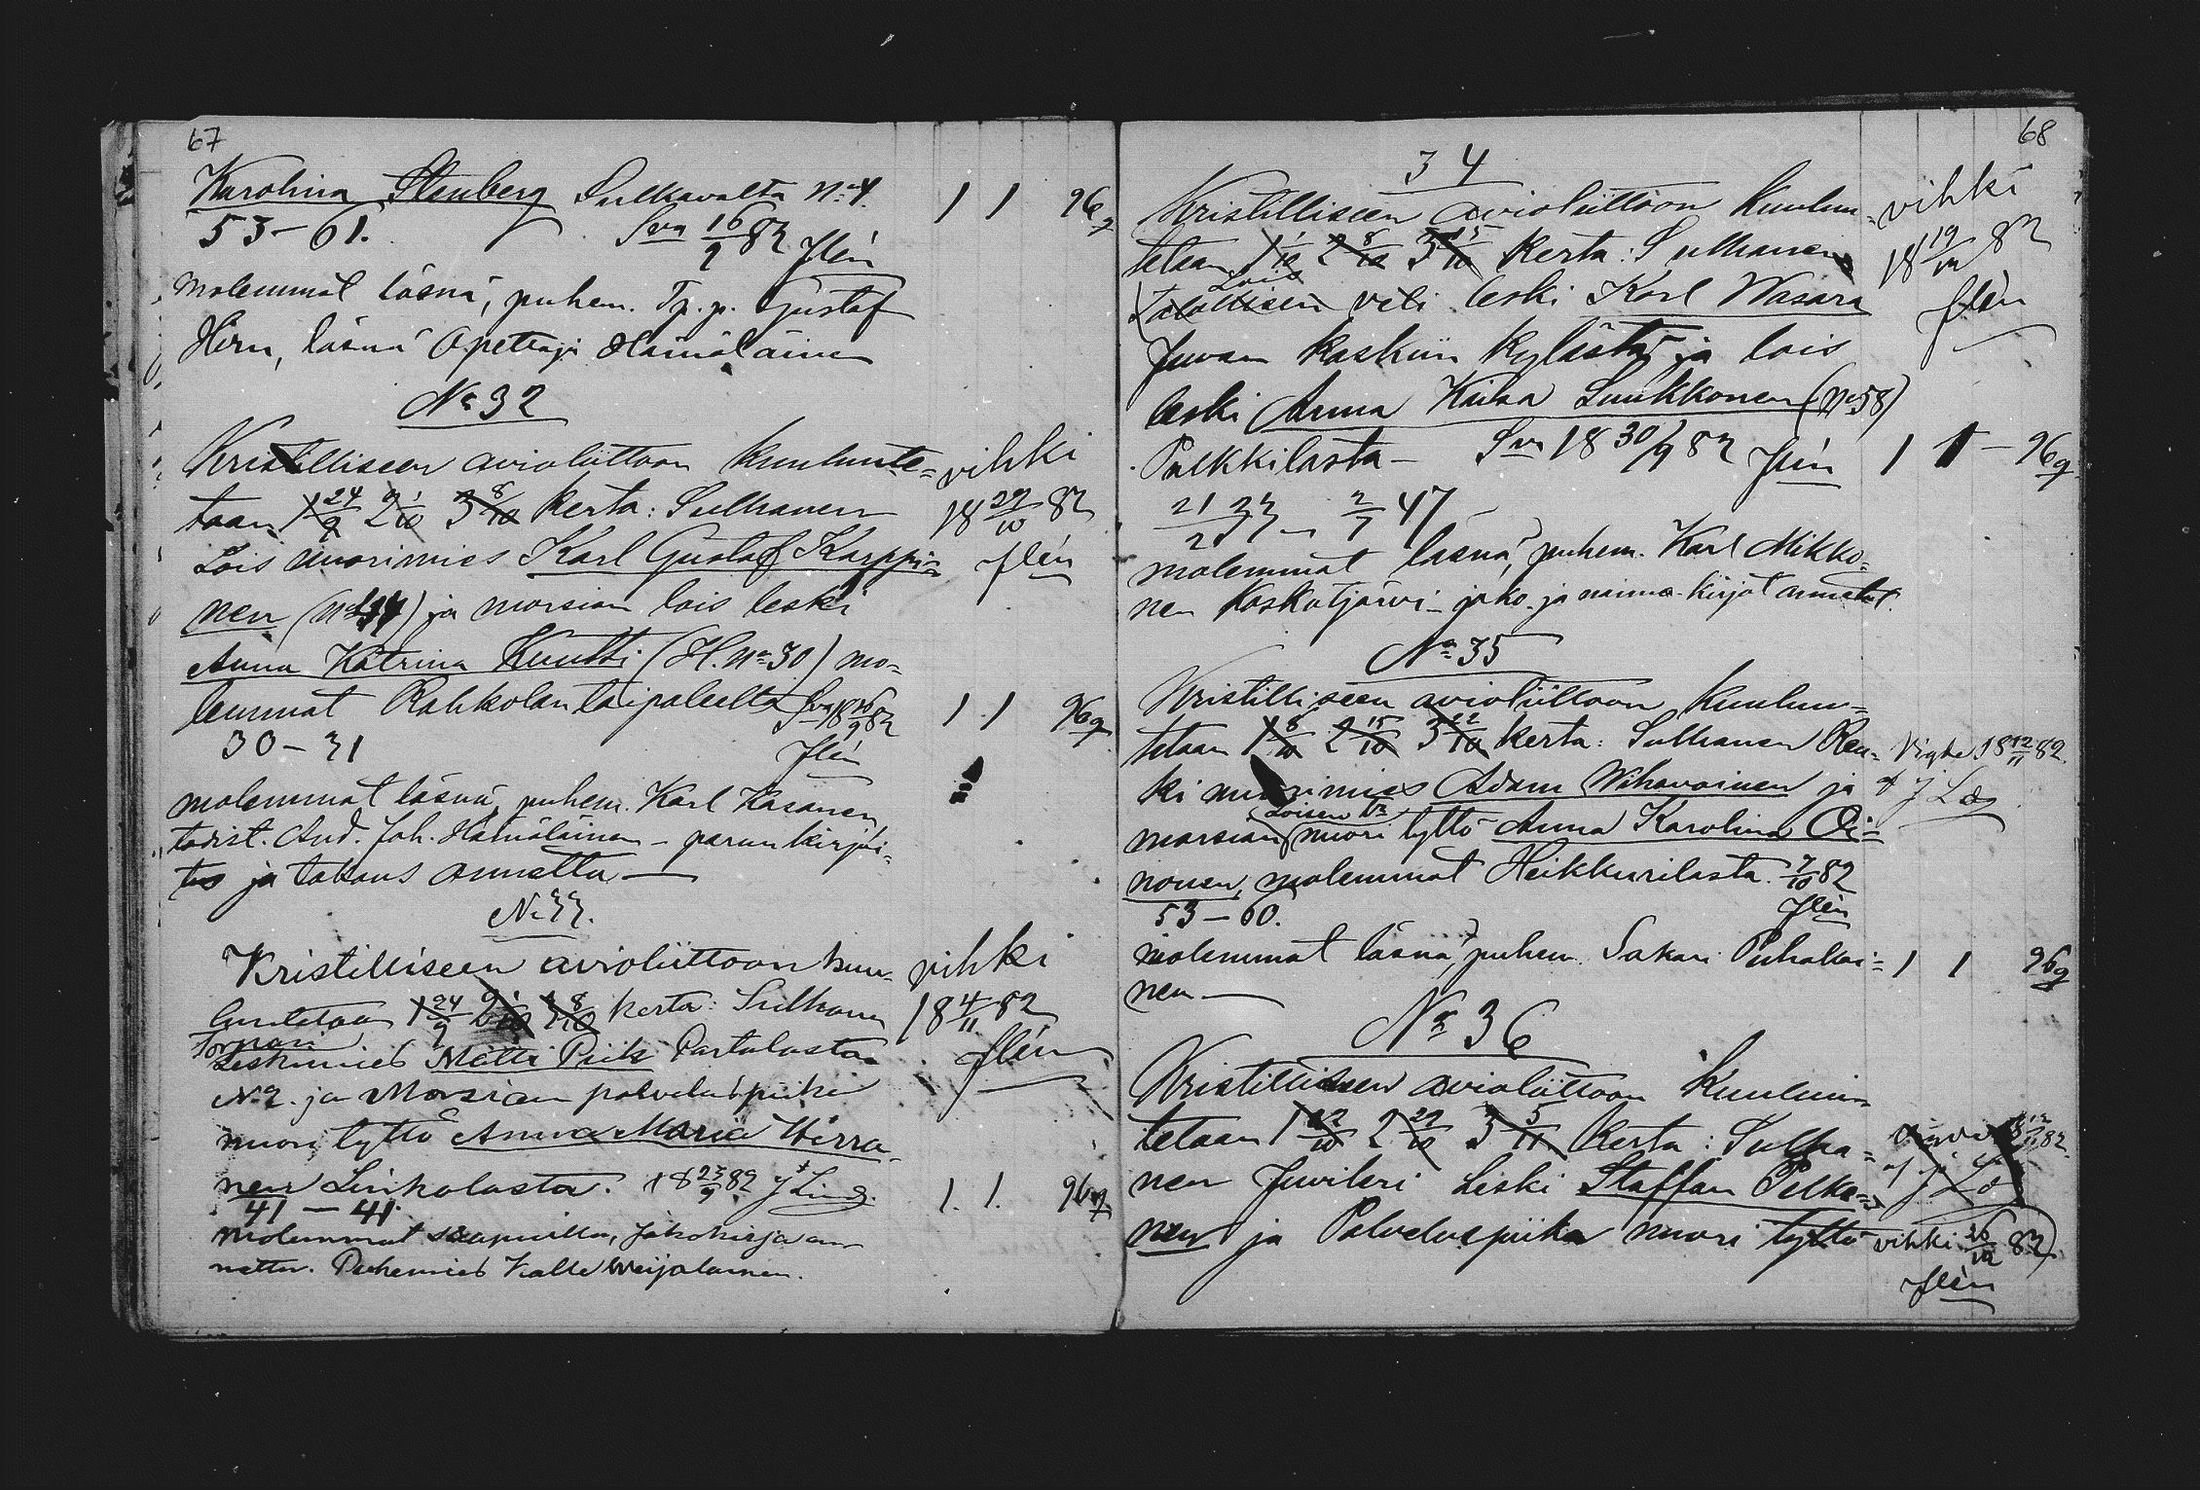 67
Karolina Stenberg Sulkavalta No 4. 1 1 96
53–61. Sva 16/9 82 Flén
molemmat läsnä, puhem. Tp. p. Gustaf
Hirn, läsnä Opettaja Hämäläinen
No 32
Kristilliseen avioliittoon kuulute= vihki
taan 1 24/9 2 1/10 3 8/10 kerta: Sulhanen 18 29/10 82
Lois nuorimies Karl Gustaf Karppi= Flén
nen ja morsian lois leski
Anna Katrina Kuutti (H. No 30) mo=
lemmat Rahkolan taipaleelta Sva 18 16/9 82 1 1 96
30–31 Flén
molemmat läsnä, puhem. Karl Kasanen
todist. And. Joh. Hämäläinen – perunkirjoi=
tus ja takaus annettu —
No 33.
Kristilliseen avioliittoon kuu- vihki
lutetaan 1 24/9 2 1/10 3 8/10 kerta: Sulhanen 18 4/11 82
Torpan Flén
Leskimies Matti Piik Partalasta
No 2. ja Morsian palveluspiika
nuori tyttö Anna Maria Hirvo-
nen Linkolasta. 18 23/9 82 1. 1. 96
41 – 41.
Molemmat saapuilla, Jakokirja an
nettu. Puhemies Kalle Weijalainen.
68
34
Kristilliseen avioliittoon kuulu= vihki
tetaan 1 1/10 2 8/10 3 15/10 kerta: Sulhanen 18 19/12 82
Lois Flén
Talollisen veli leski Karl Wasara
Juvan Kaskiin kylästä ja lois
leski Anna Kaisa Luukkonen (No 58)
Pulkkilasta – Sva 18 30/9 82 Flén 1 1 – 96
21/2 33 – 2/7 47
molemmat läsnä, puhem. Karl Mikko=
nen Koskutjärvi – jako ja naima-kirjat annetut.
No 35
Kristilliseen avioliittoon kuulu=
tetaan 1 8/10 2 15/10 3 22/10 kerta: Sulhanen Ren= Vigde 18 12/11 82
ki nuorimies Adam Wihavainen ja af J L
Loisen tr
morsian nuori tyttö Anna Karolina Oi=
nonen, molemmat Heikkurilasta. 7/10 82
53–60. Flén
molemmat läsnä, puhem. Sakari Puhakai= 1 1 96
nen —
No 36
Kristilliseen avioliittoon kuulu=
tetaan 1 22/10 2 29/10 3 5/11 kerta: Sulha= Vigde 18 12/11 82.
nen Juvilari Leski Staffan Pelko= af J L
nen ja Palveluspiika nuori tyttö vihki 26/12 82
Flén